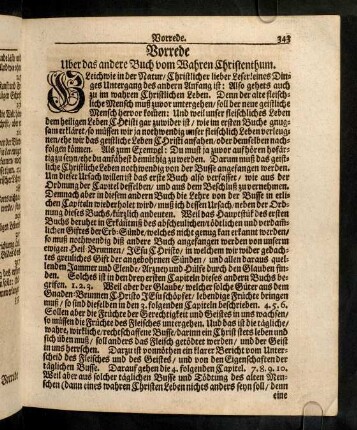 Vorrede. 343
Vorrede
Uber das andere Buch vom Wahren Christenthum.
Gleichwie in der Natur/ Christlicher lieber Leser! eines Din-
ges Untergang des andern Anfang ist: Also gehets auch
zu im wahren Christlichen Leben. Denn der alte fleisch-
liche Mensch muß zuvor untergehen/ soll der neue geistliche
Mensch hervor kommen: Und weil unser fleischlich Leben
dem heiligen Leben Christi gar zuwider ist/ wie im ersten Buche gnug-
sam erkläret: so müssen wir ja nothwendig unser fleischlich Leben verleug-
nen/ ehe wir das geistliche Leben Christi anfahen/ oder demselben nach-
folgen können. Als zum Exempel: Du must ja zuvor aufhören hoffär-
tig zu seyn/ ehe du anfähest demüthig zu werden. Darum muß das geist-
liche Christliche Leben nothwendig von der Busse angefangen werden.
Um dieser Ursach willen ist das erste Buch also verfasset/ wie aus der
Ordnung der Capitel desselben/ und aus dem Beschluß zu vernehmen.
Demnach aber in diesem andern Buch die Lehre von der Busse in etli-
chen Capiteln wiederholet wird/ muß ich dessen Ursach/ neben der Ord-
nung dieses Buchs/ kürtzlich andeuten. Weil das Hauptstück des ersten
Buchs beruhet in Erkäntniß des abscheulichen/ tödtlichen und verdamm-
lichen Giftes der Erb-Sünde/ welches nicht genug kan erkannt werden:
so muß nothwendig diß andere Buch angefangen werden von unserm
ewigen Heil-Brunnen/ JEsu Christo/ in welchem wir wider gedach-
tes greuliches Gift der angebohrnen Sünden/ und allen daraus quel-
lenden Jammer und Elende/ Artzney und Hülfe durch den Glauben fin-
den. Solches ist in den drey ersten Capiteln dieses andern Buchs be-
griffen. 1. 2. 3. Weil aber der Glaube/ welcher solche Güter aus dem
Gnaden-Brunnen Christo JEsu schöpfet/ lebendige Früchte bringen
muß/ so sind dieselben in den 3. folgenden Capiteln beschrieben. 4. 5. 6.
Sollen aber die Früchte der Gerechtigkeit und Geistes in uns wachsen/
so müssen die Früchte des Fleisches untergehen. Und das ist die tägliche/
wahre/ wirkliche/ rechtschaffene Busse/ darinn ein Christ stets leben und
sich üben muß/ soll anders das Fleisch getödtet werden/ und der Geist
in uns herrschen. Dazu ist vonnöthen ein klarer Bericht vom Unter-
scheid des Fleisches und des Geistes/ und von den Eigenschaften der
täglichen Busse. Darauf gehen die 4. folgenden Capitel. 7. 8. 9. 10.
Weil aber aus solcher täglichen Busse und Tödtung des alten Men-
schen (dann eines wahren Christen Leben nichts anders seyn soll/ denn
eine